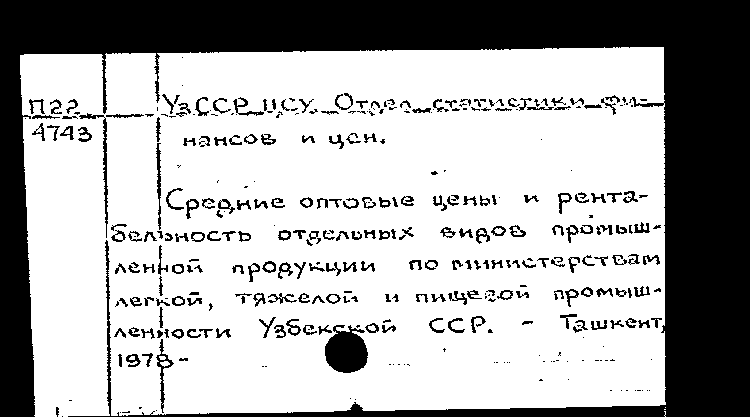 П22
4743
УзССР ЦСУ. Отдел статистики фи-
нансов и цен.
Средние оптовые цены и рента-
бельность отдельных видов промыш-
ленной продукции по министерствам
легкой, тяжелой и пищевой промыш-
ленности Узбекской ССР. - Ташкент,
1978-